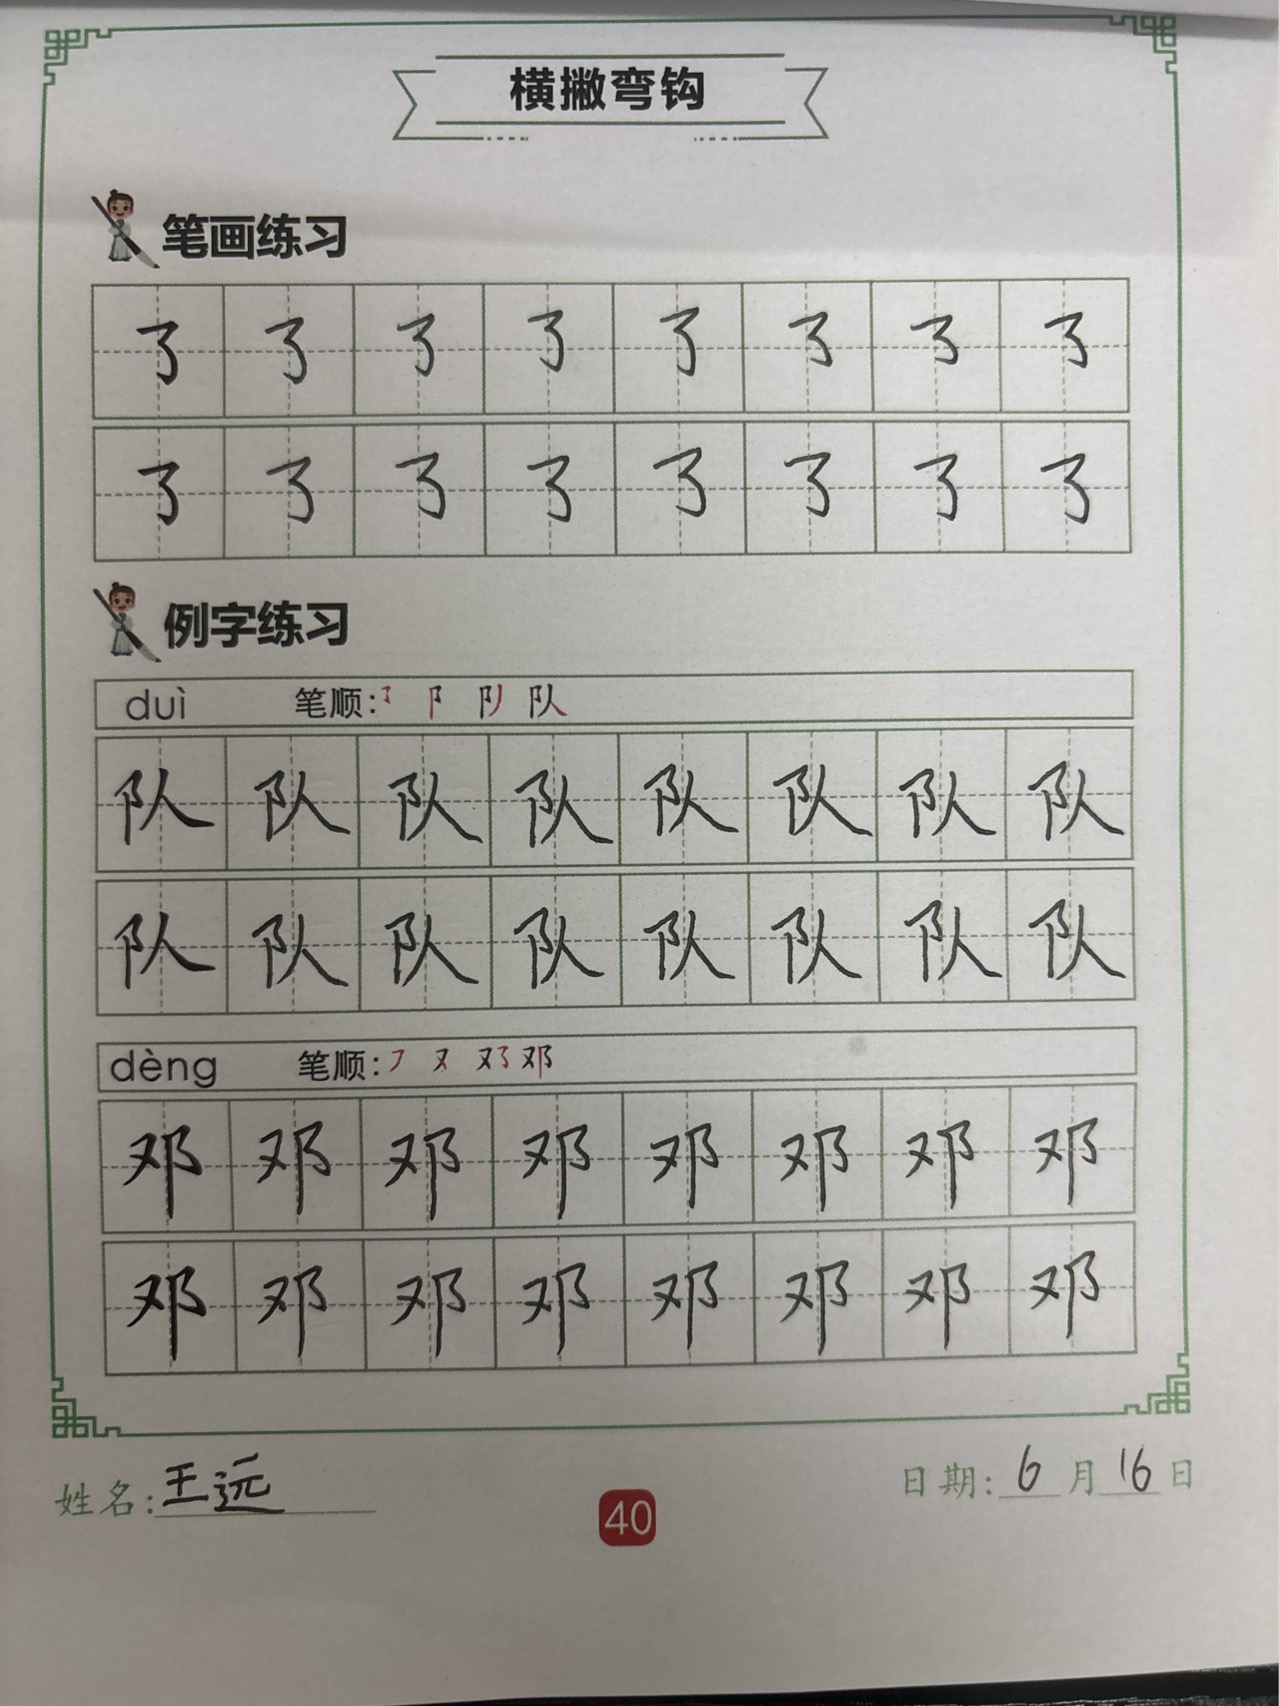 横撇弯钩
笔画练习
㇌ ㇌ ㇌ ㇌ ㇌ ㇌ ㇌ ㇌
㇌ ㇌ ㇌ ㇌ ㇌ ㇌ ㇌ ㇌
例字练习
duì 笔顺:㇌ 阝 队
队 队 队 队 队 队 队 队
队 队 队 队 队 队 队 队
dèng 笔顺:㇇ 又 邓
邓 邓 邓 邓 邓 邓 邓 邓
邓 邓 邓 邓 邓 邓 邓 邓
姓名:王远 日期:6月16日
40